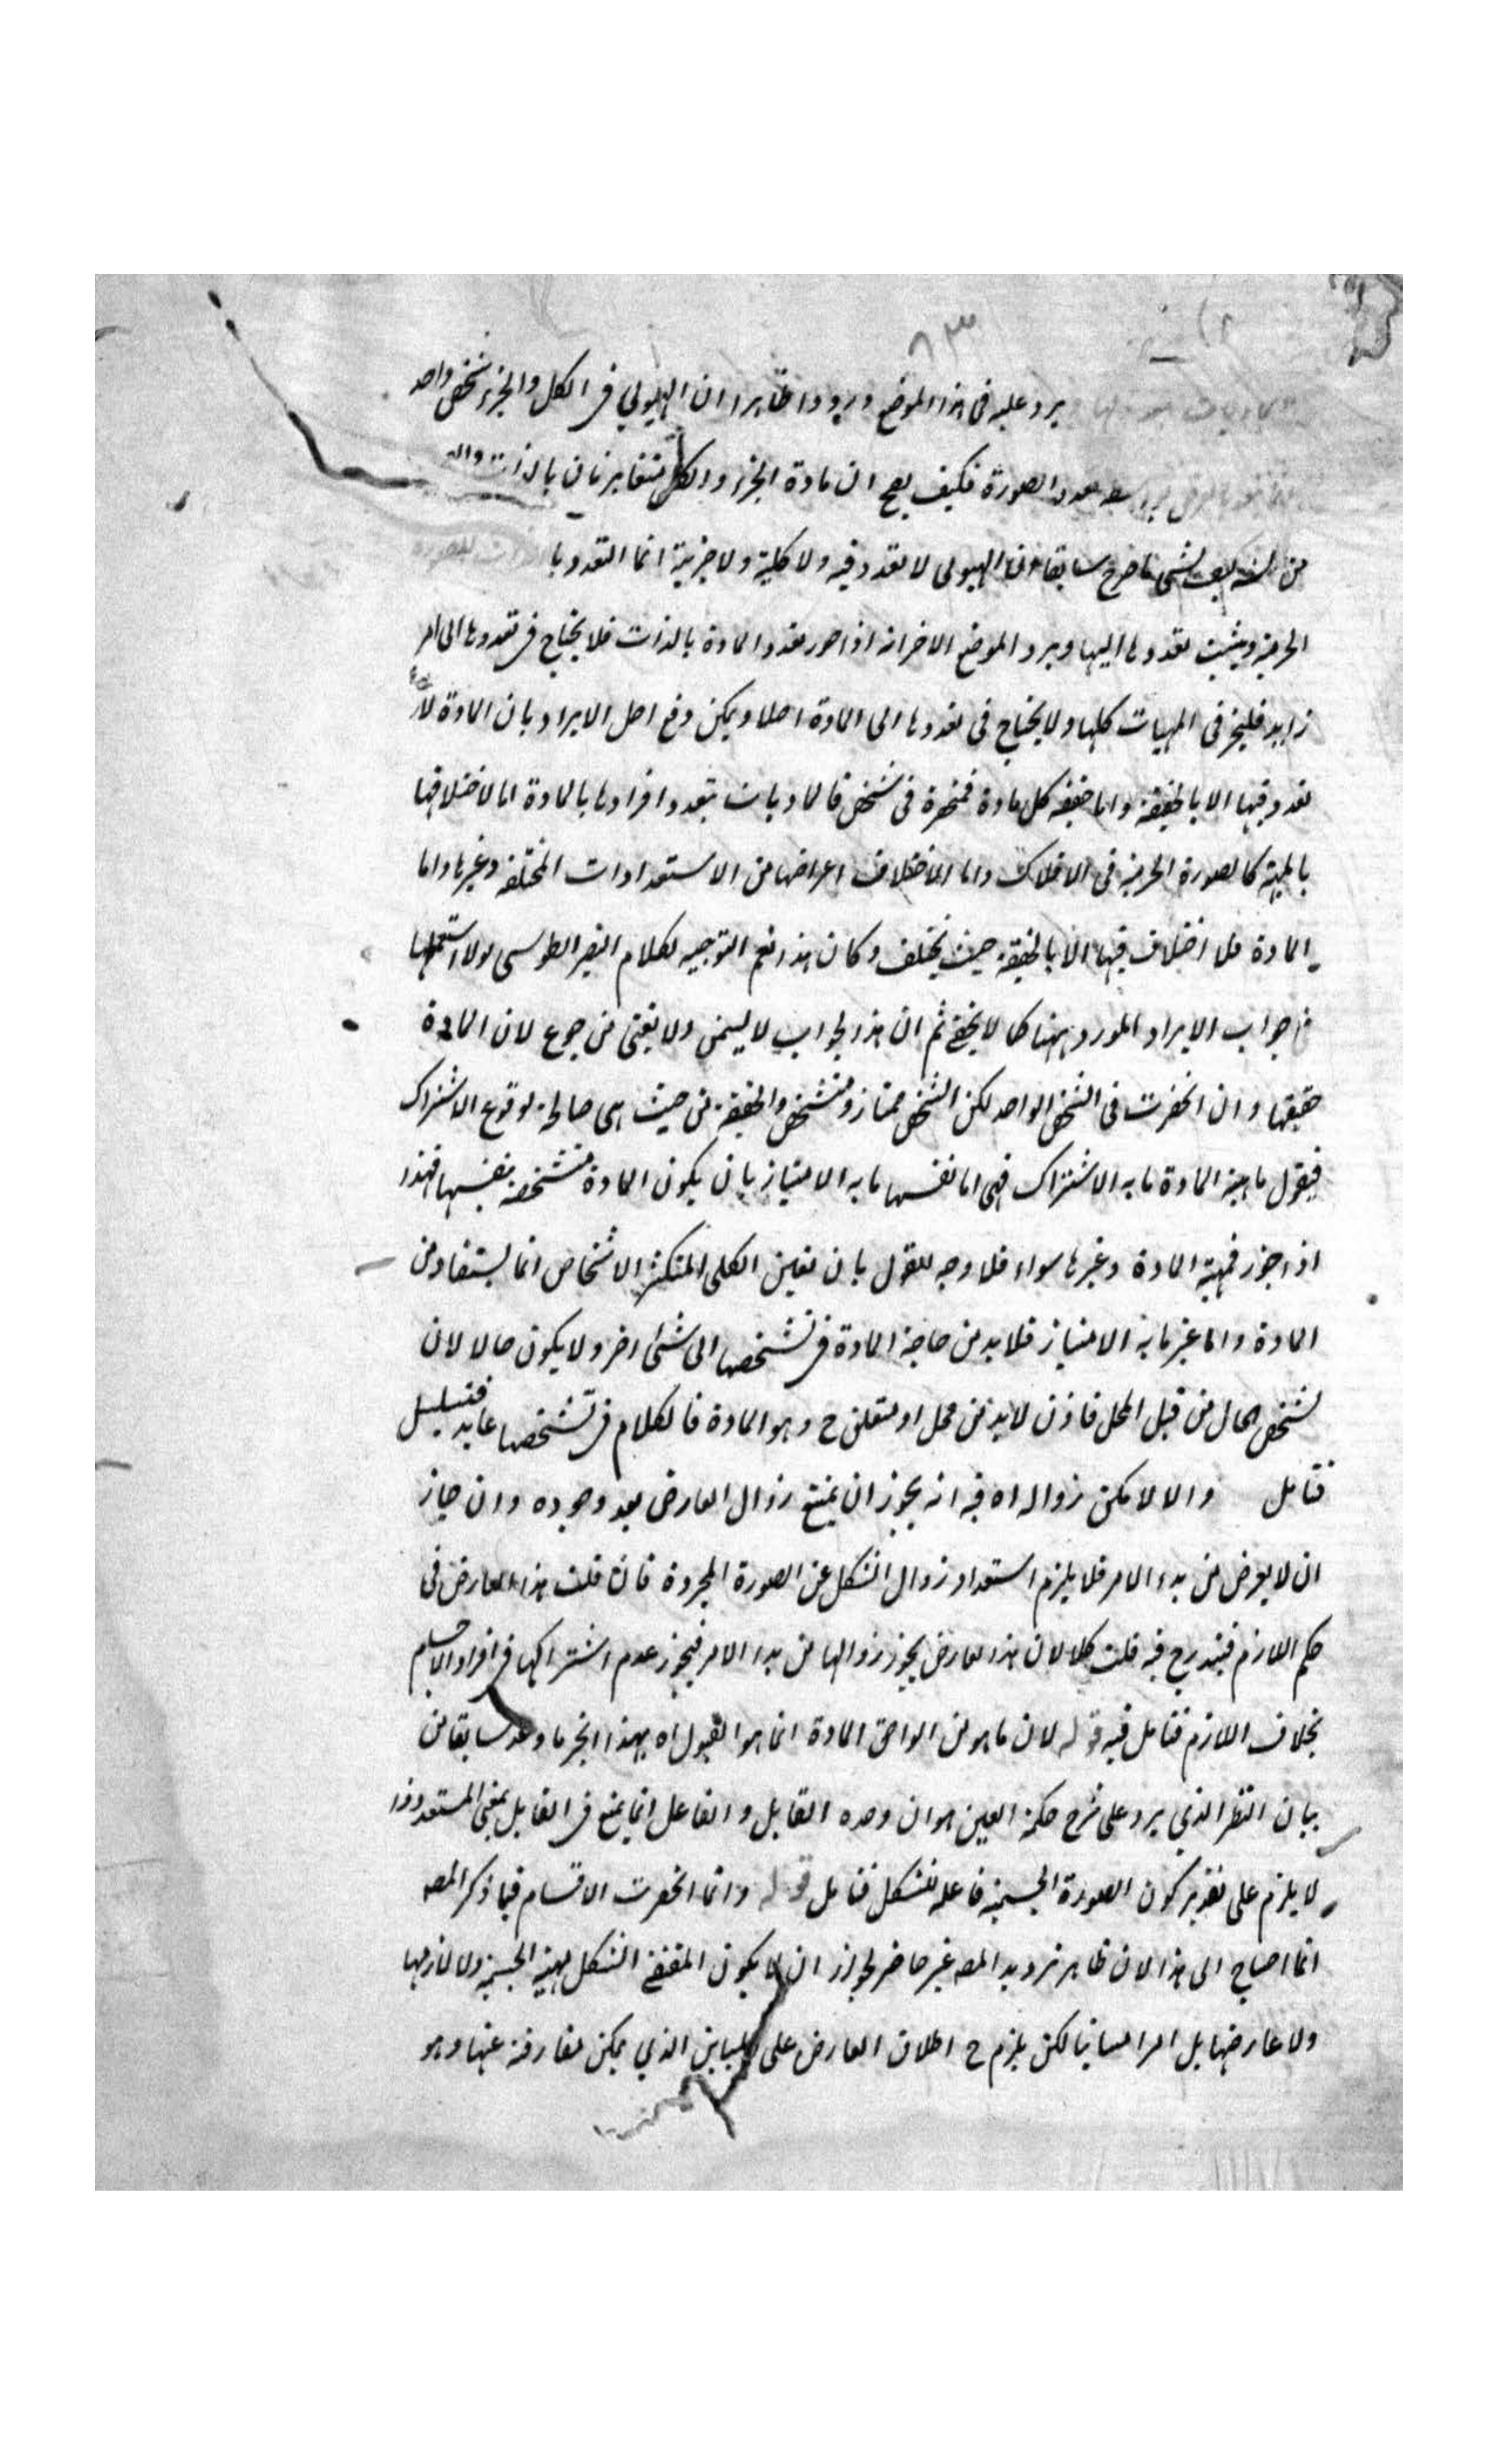 ٨٣
يرد عليه فى هذا الموضع ورودا ظاهرا ان الهيولى فى الكل والجزء شخص واحد
الصورة فكيف يصح ان مادة الجزء والكل متغايرتان بالذات
سابقا ان الهيولى لا تعدد فيه ولا كلية ولا جزئية انما التعدد با
الجرمية ويثبت تعددها اليها ويرد الموضع الاخر انه اذا تعدد المادة بالذات فلا يحتاج فى تعددها الى امر
زايد فليجز فى المهيات كلها ولا يحتاج فى تعددها الى المادة اصلا ويمكن دفع اصل الايراد بان المادة لا
تعدد فيها الا بالحقيقة واما حقيقة كل مادة فمنحصرة فى شخص فالماديات يتعدد افرادها بالمادة اما لاختلافها
بالمهية كالصورة الجرمية فى الافلاك واما لاختلاف اعراضها من الاستعدادات المختلفة وغيرها واما
المادة فلا اختلاف فيها الا بالحقيقة حيث يختلف وكان هذا نعم التوجيه لكلام النصير الطوسى لولا
جواب الايراد المورد ههنا كما لا يخفى ثم ان هذا الجواب لا يسمن ولا يغنى من جوع لان المادة
حقيقتها وان انحصرت فى الشخص الواحد لكن الشخص ممتاز ومتشخص والحقيقة من حيث هى صالحة لوقوع الاشتراك
فيقول ماهية المادة ما به الاشتراك فهى اما نفسها ما به الامتياز بان يكون المادة متشخصة بنفسها فهذا
اذا جوز فمهية المادة وغيرها سواء فلا وجه للقول بان تعين الكلى المتكثر الاشخاص انما يستفاد من
المادة واما غير ما به الامتياز فلا بد من حاجة المادة فى تشخصها الى شئ اخر ولا يكون حالا لان
تشخص الحال من قبل المحل فاذن لا بد من محل او متعلق ح وهو المادة فالكلام فى تشخصها عايد فتسلسل
فتامل والا لامكن زواله اه فيه انه يجوز ان يمتنع زوال العارض بعد وجوده وان جاز
ان لا يعرض من بدء الامر فلا يلزم استعداد زوال الشكل عن الصورة المجردة فان قلت هذا العارض فى
حكم اللازم فيندرج فيه قلت كلا لان هذا العارض يجوز زوالها من بدء الامر فيجوز عدم اشتراكها فى افراد الاجسام
بخلاف اللازم فتامل فيه قوله لان ما هو من لواحق المادة انما هو القبول اه بهذا انجز ما وعد سابقا من
بيان النظر الذى يرد على شرح حكمة العين هو ان وحدة القابل والفاعل انما يمنع فى القابل بمعنى المستعد وذا
لا يلزم على تقدير كون الصورة الجسمية فاعلة للشكل فتامل قوله وانما انحصرت الاقسام فيما ذكر المصه
انما احتاج الى هذا لان ظاهر ترديد المصه غير حاصر لجواز ان لا يكون المقتضى الشكل مهية الجسمية ولا لازمها
ولا عارضها بل امرا مباينا لكن يلزم ح اطلاق العارض على المباين الذى يمكن مفارقته عنها وهو